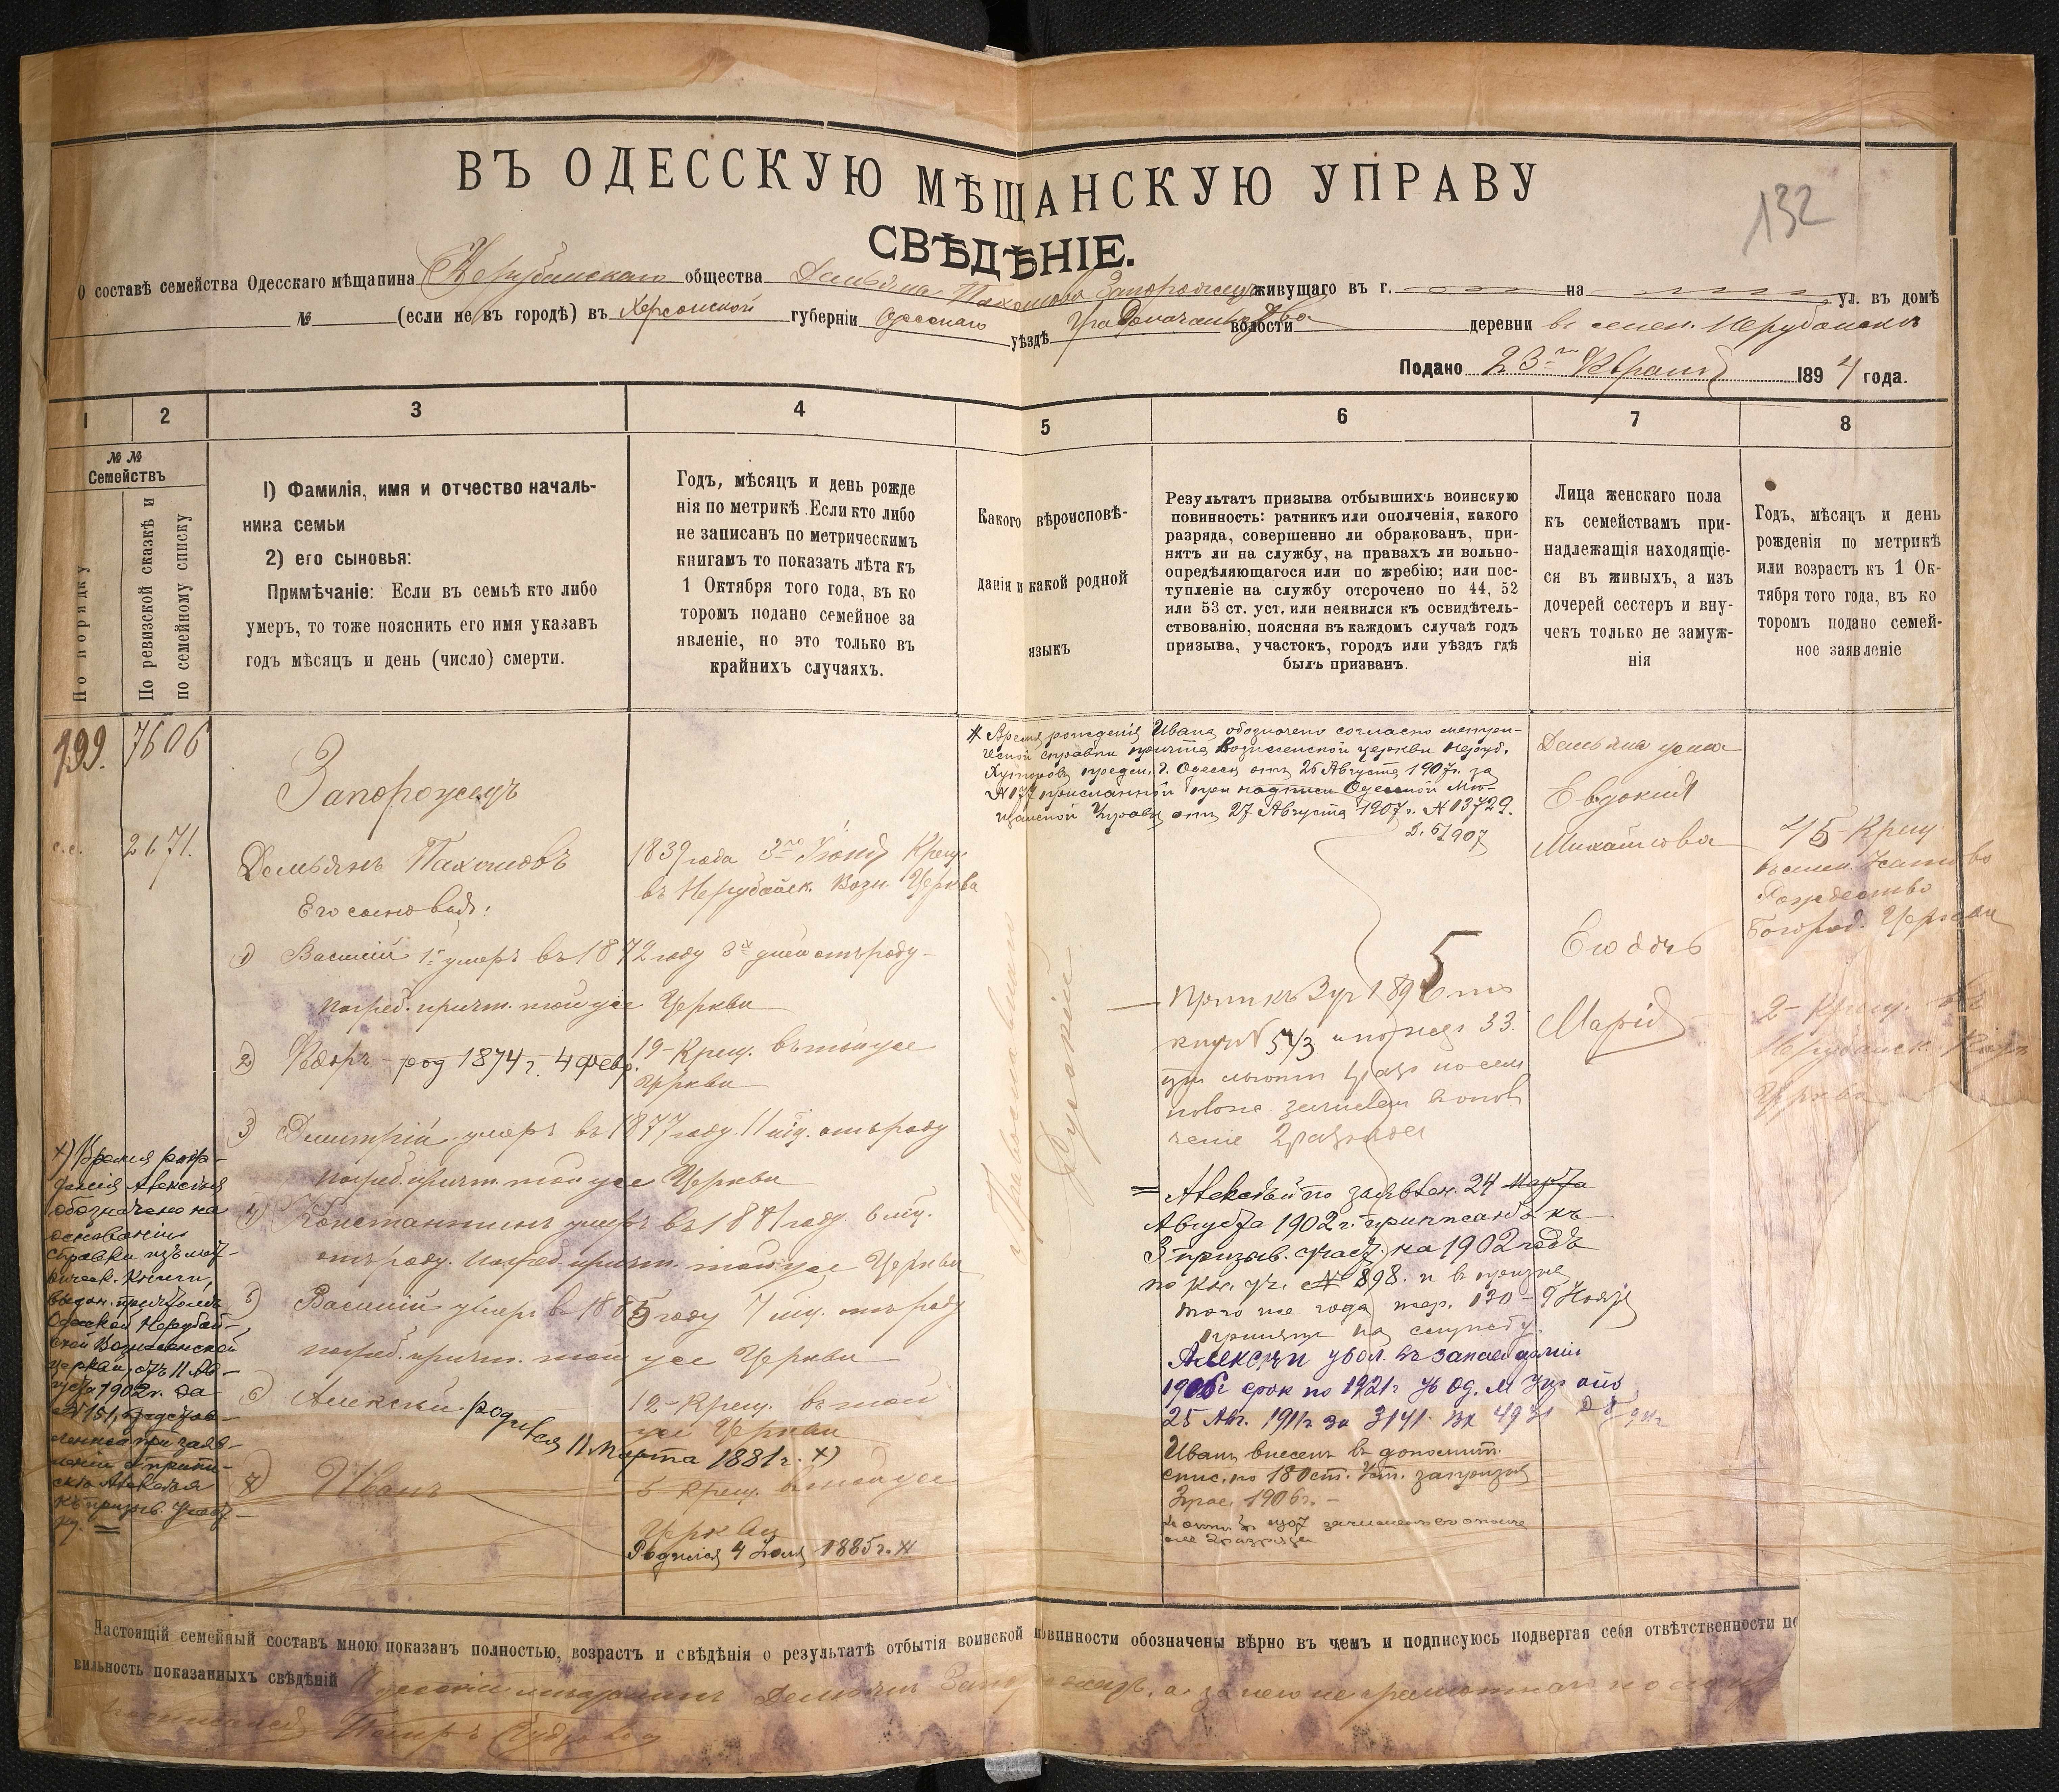 132
ВЪ ОДЕССКУЮ МѢЩАНСКУЮ УПРАВУ
СВѢДѢНІЕ.
О составѣ семейства Одесскаго мѣщанина Нерубайскаго общества Демьяна Пахомова Запорожецъ живущаго въ г. на ул. въ домѣ
№ (если не въ городѣ) въ Херсонской губерніи Одесскаго уѣздѣ Градоначальства волости деревни въ селен. Нерубайскѣ
Подано 23го 1894 года.
1 2 3 4 5 6 7 8
№ №
Семействъ
По порядку
По ревизской сказкѣ и
по семейному списку
1) Фамилія, имя и отчество началь-
ника семьи
2) его сыновья:
Примѣчаніе: Если въ семьѣ кто либо
умеръ, то тоже пояснить его имя указавъ
годъ мѣсяцъ и день (число) смерти.
Годъ, мѣсяцъ и день рожде
нія по метрикѣ. Если кто либо
не записанъ по метрическимъ
книгамъ то показать лѣта къ
1 Октября того года, въ ко
торомъ подано семейное за
явленіе, но это только въ
крайнихъ случаяхъ.
Какого вѣроисповѣ-
данія и какой родной
языкъ
Результатъ призыва отбывшихъ воинскую
повинность: ратникъ или ополченія, какого
разряда, совершенно ли обракованъ, при-
нятъ ли на службу, на правахъ ли вольно-
опредѣляющагося или по жребію; или пос-
тупленіе на службу отсрочено по 44, 52
или 53 ст. уст. или неявился къ освидѣтель-
ствованію, поясняя въ каждомъ случаѣ годъ
призыва, участокъ, городъ или уѣздъ гдѣ
былъ призванъ.
Лица женскаго пола
къ семействамъ при-
надлежащія находящіе-
ся въ живыхъ, а изъ
дочерей сестеръ и вну-
чекъ только не замуж-
нія
Годъ, мѣсяцъ и день
рожденія по метрикѣ
или возрастъ къ 1 Ок-
тября того года, въ ко
торомъ подано семей-
ное заявленіе
199. 7606
Запорожецъ
с.с. 2171.
Демьянъ Пахомовъ
Его сыновья:
1839 года 3го Крещ.
въ Нерубайск. Возн. Церква
1) Василій 1й умеръ въ 1872 году 3х дней отъ роду
погреб. причт. той же Церкви
2) Ѳедоръ - род 1874 г. 4 февр. 19 - Крещ. въ той же
Церкви
3) Димитрій умеръ въ 1877 году. 11 мц. отъ роду
погреб. причт. той же Церкви
4) Константинъ умеръ въ 1881 году. 6 мц.
отъ роду. погреб. причт. той же Церкви
5) Василій умеръ въ 1885 году 7 мц. отъ роду
погреб. причт. той же Церкви
6) Алексѣй. родився 11 Марта 1881 г. х)
12 - Крещ. въ той
же Церкви
7) Иванъ
5 Крещ. въ той же
Церкви
Родился 4 Іюля 1885 г. х
х) Время рож-
денія Алексѣя
обозначено на
основаніи
справки изъ мет-
рическ. книги,
выдан. причтомъ
Одесской Нерубай-
ской Вознесенской
церкви, отъ 11 Ав-
густа 1902 г. за
№ 151, представ-
ленной при заяв-
леніи о припи-
скѣ Алексѣя
къ призыв. участ-
ку. =
Православнаго
Русскій
х Время рожденія Ивана обозначено согласно метри-
ческой справки причта Вознесенской церкви Неруб.
Хуторовъ предм. г. Одессы отъ 25 Августа 1907 г. за
№ 137 присланной при надписи Одесской Мѣ-
щанской Управы отъ 27 Августа 1907 г. № 13729.
1907
5
Прип къ 3 уч 1896 по
книгѣ № 543 и по жер 33.
Алексѣй по заявлен. 24 Марта
Августа 1902 г. приписанъ къ
3 призыв. участ. на 1902 годъ
по кн. уч. № 898. и въ призывѣ
того же года жер. 130 - 9 Ноября
принятъ на службу.
Алексѣй увол. въ запасъ арміи
1906 г срокъ по 1921 г Од. М Упр
25 Авг. 1911 г за 3141. Вх 4931
Иванъ внесенъ въ дополнит.
спис. по 180 ст. Уст. за призыв
1906 г.
1907 зачисленъ въ ополче
ніе 2 разряда
Демьяна жена
Евдокія
Михайлова
45 - Крещ.
Рождество
Богород. Церкви
Его дочь
Марія
2 - Крещ. въ
Нерубайск.
Церкви
Настоящій семейный составъ мною показанъ полностью, возрастъ и свѣдѣнія о результатѣ отбытія воинской повинности обозначены вѣрно въ чемъ и подписуюсь подвергая себя отвѣтственности
вильность показанныхъ свѣдѣній Одесскій мѣщанинъ Демьянъ Запорожецъ, а за него не грамотнаго
Петръ